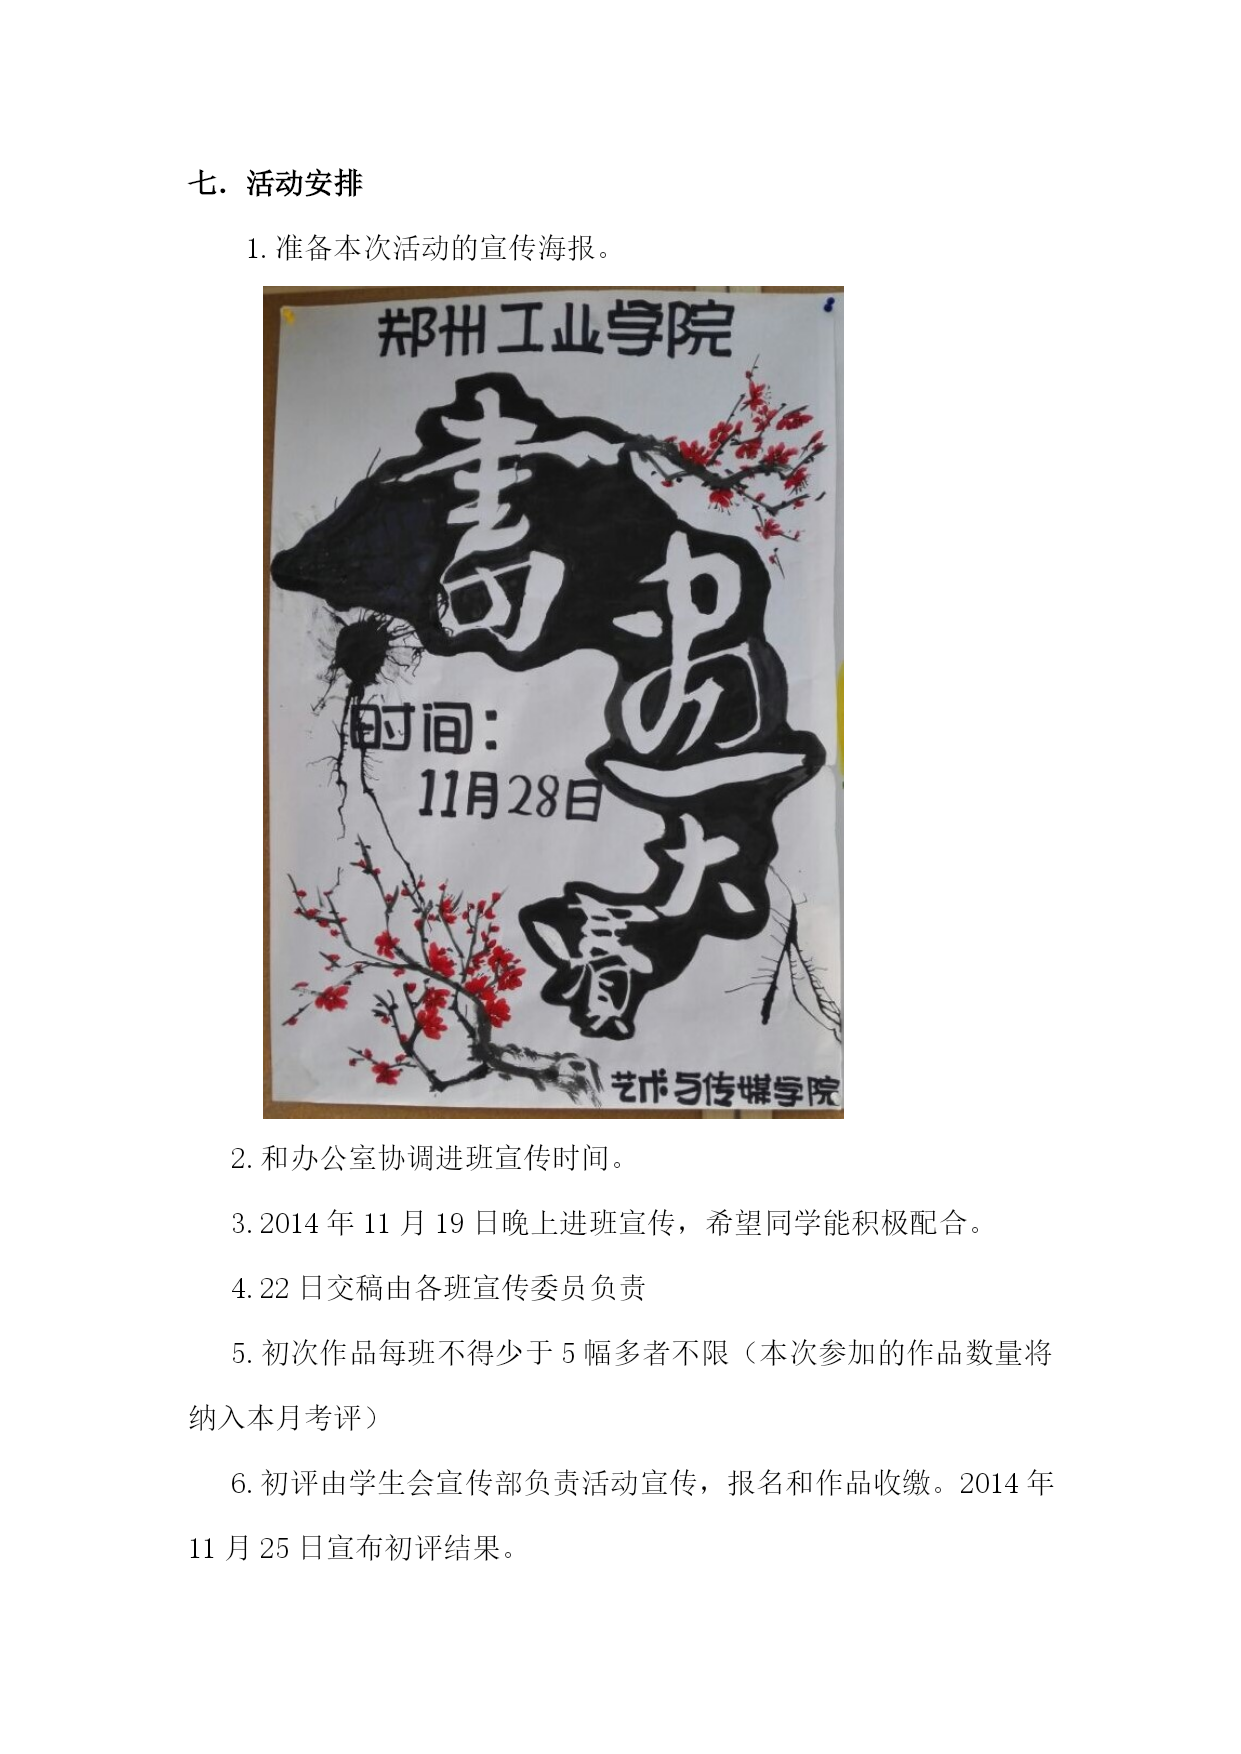 七．活动安排
1.准备本次活动的宣传海报。
郑州工业学院
書
画
大
赛
时间：
11月28日
艺术与传媒学院
2.和办公室协调进班宣传时间。
3.2014 年 11 月 19 日晚上进班宣传，希望同学能积极配合。
4.22 日交稿由各班宣传委员负责
5.初次作品每班不得少于 5 幅多者不限（本次参加的作品数量将
纳入本月考评）
6.初评由学生会宣传部负责活动宣传，报名和作品收缴。2014 年
11 月 25 日宣布初评结果。